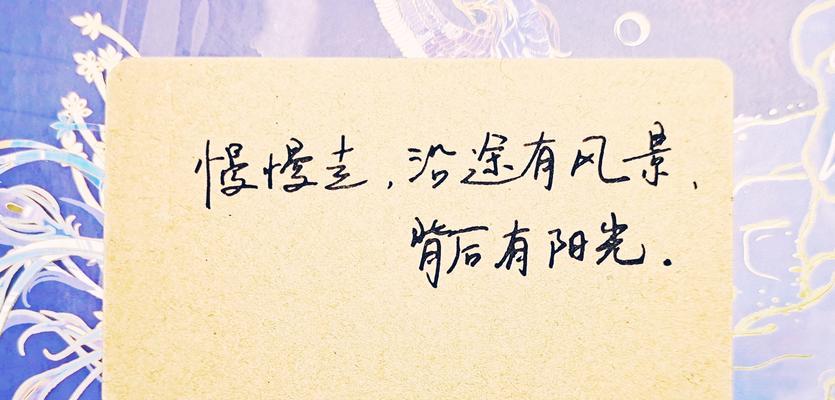 慢慢走，沿途有风景，
背后有阳光.